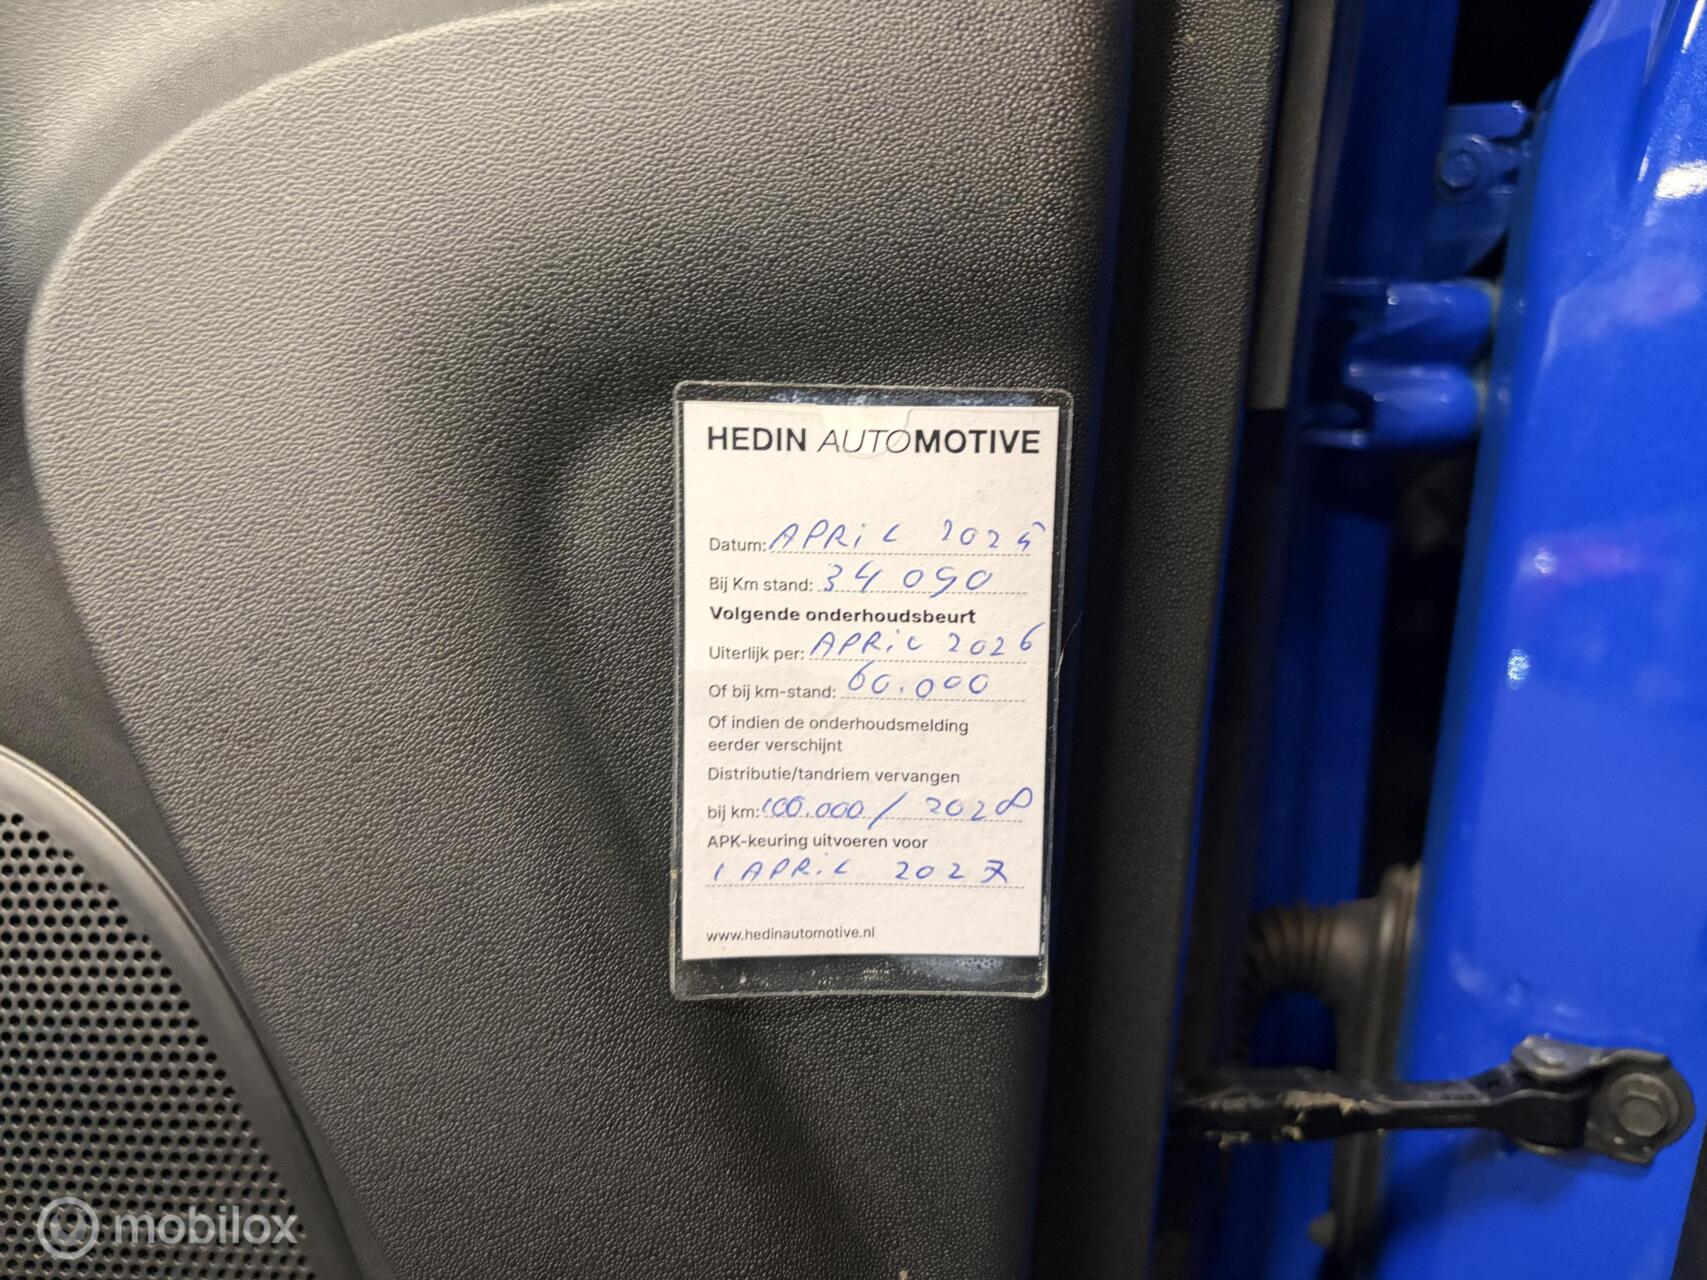 HEDIN AUTOMOTIVE
Datum: APRiL 2025
Bij Km stand: 34090
Volgende onderhoudsbeurt
Uiterlijk per: APRiL 2026
Of bij km-stand: 60.000
Of indien de onderhoudsmelding
eerder verschijnt
Distributie/tandriem vervangen
bij km: 100.000 / 2028
APK-keuring uitvoeren voor
1 APRiL 2027
www.hedinautomotive.nl
mobilox